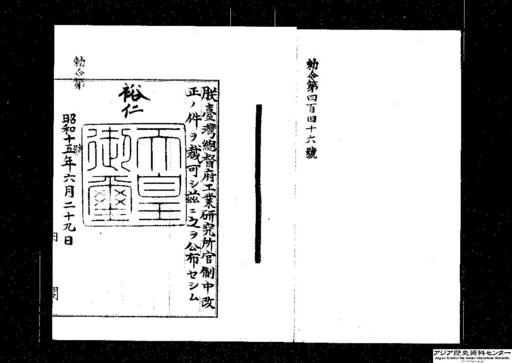 勅令第四百四十六號
朕臺灣總督府工業研究所官制中改
正ノ件ヲ裁可シ茲ニ之ヲ公布セシム
裕仁
天皇
御璽
昭和十五年六月二十九日
勅令第
內閣
アジア歴史資料センター
Japan Center for Asian Historical Records